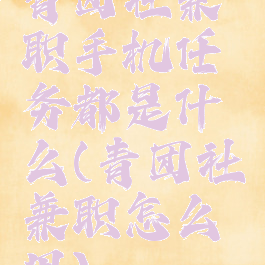 青团社兼
职手机任
务都是什
么(青团社
兼职怎么